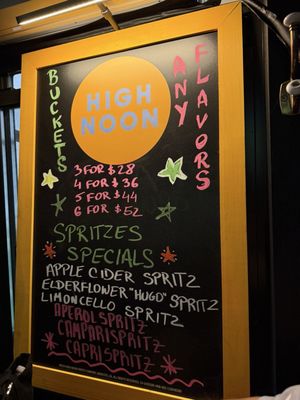 BUCKETS
HIGH
NOON
ANY
FLAVORS
3 FOR $28
4 FOR $36
5 FOR $44
6 FOR $52
SPRITZES
SPECIALS
APPLE CIDER SPRITZ
ELDERFLOWER "HUGO" SPRITZ
LIMONCELLO SPRITZ
APEROL SPRITZ
CAMPARI SPRITZ
CAPRI SPRITZ